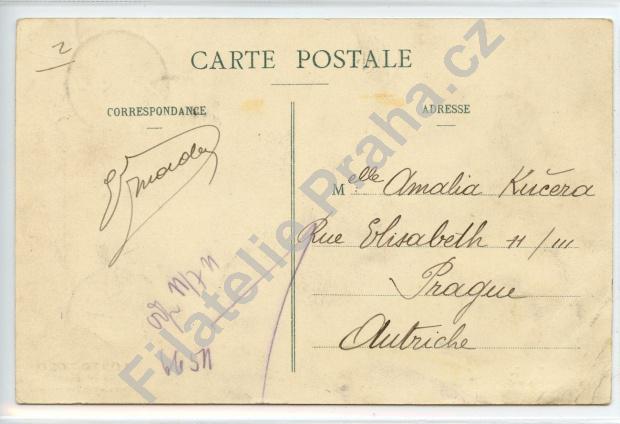 2
CARTE POSTALE
CORRESPONDANCE
ADRESSE
Melle Amalia Kučera
Rue Elisabeth 11/III
Prague
Autriche
Filatelie-Praha.cz